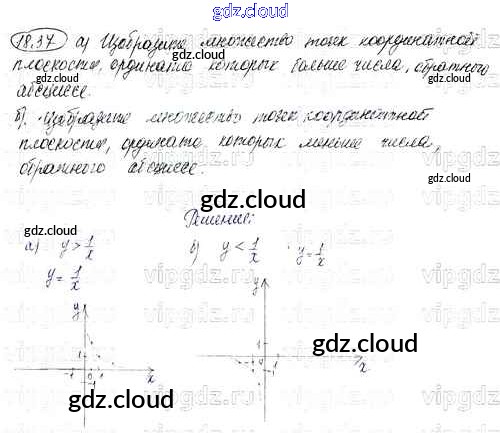 gdz.cloud
18.37 а) Изобразите множество точек координатной
плоскости, ордината которых больше числа, обратного
абсциссе.
б). Изобразите множество точек координатной
плоскости, ордината которых меньше числа,
обратного абсциссе.
gdz.cloud
gdz.cloud
gdz.cloud
gdz.cloud
Решение:
gdz.cloud
а) y > 1/x
б) y < 1/x y = 1/x
gdz.cloud
y = 1/x
y
y
1
1
-1 0 1 x
-1
-1 1
x
gdz.cloud
gdz.cloud
vipgdz.ru